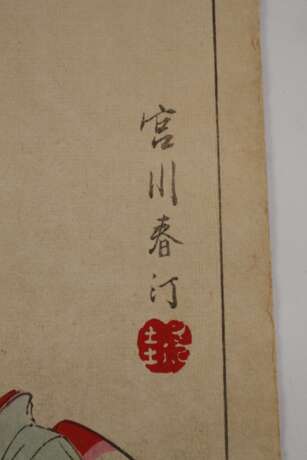 宮川春汀